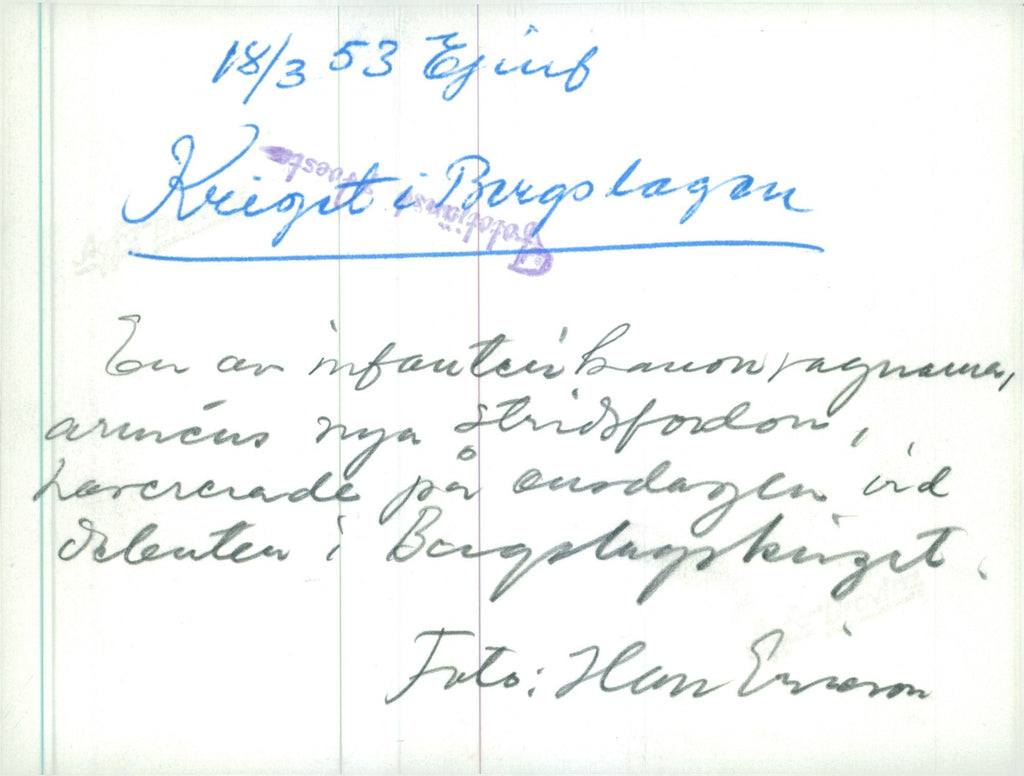 18/3 53
Kriget i Bergslagen
En av infanterikanonvagnarna,
arméns nya stridsfordon,
havererade på onsdagen vid
debuten i Bergslagskriget.
Foto: Han Ericson